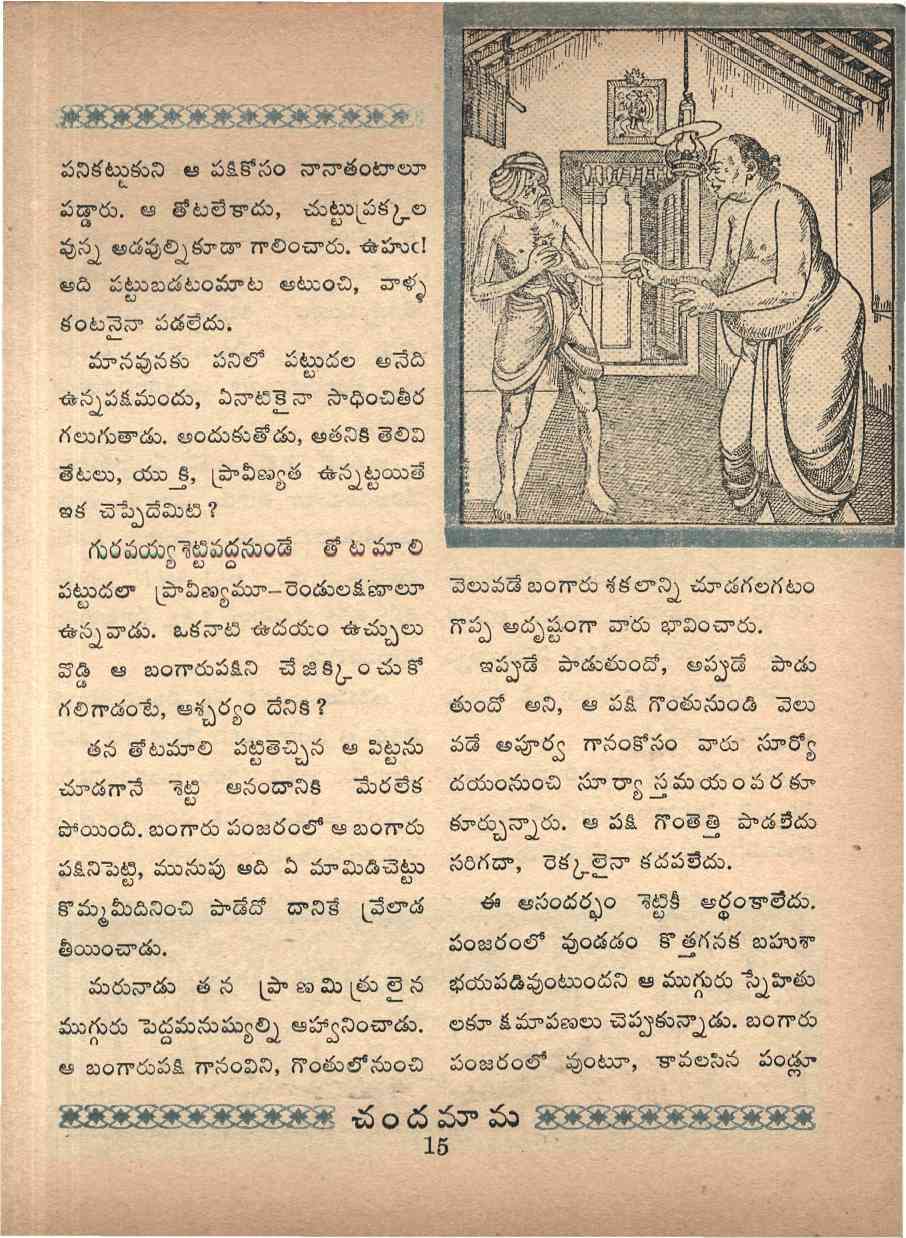 పనికట్టుకుని ఆ పక్షికోసం నానాతంటాలూ
పడ్డారు. ఆ తోటలేకాదు, చుట్టుప్రక్కల
వున్న అడవుల్నికూడా గాలించారు. ఉహుఁ!
అది పట్టుబడటంమాట అటుంచి, వాళ్ళ
కంటనైనా పడలేదు.
మానవునకు పనిలో పట్టుదల అనేది
ఉన్నపక్షమందు, ఏనాటికైనా సాధించితీర
గలుగుతాడు. అందుకుతోడు, అతనికి తెలివి
తేటలు, యుక్తి, ప్రావీణ్యత ఉన్నట్టయితే
ఇక చెప్పేదేమిటి ?
గురవయ్యశెట్టివద్దనుండే తోటమాలి
పట్టుదలా ప్రావీణ్యమూ—రెండులక్షణాలూ
ఉన్నవాడు. ఒకనాటి ఉదయం ఉచ్చులు
వొడ్డి ఆ బంగారుపక్షిని చేజిక్కించుకో
గలిగాడంటే, ఆశ్చర్యం దేనికి ?
తన తోటమాలి పట్టితెచ్చిన అ పిట్టను
చూడగానే శెట్టి ఆనందానికి మేరలేక
పోయింది. బంగారు పంజరంలో ఆ బంగారు
పక్షినిపెట్టి, మునుపు అది ఏ మామిడిచెట్టు
కొమ్మమీదినించి పాడేదో దానికే వ్రేలాడ
తీయించాడు.
మరునాడు తన ప్రాణమిత్రులైన
ముగ్గురు పెద్దమనుష్యుల్ని ఆహ్వానించాడు.
ఆ బంగారుపక్షి గానంవిని, గొంతులోనుంచి
వెలువడే బంగారు శకలాన్ని చూడగలగటం
గొప్ప అదృష్టంగా వారు భావించారు.
ఇప్పుడే పాడుతుందో, అప్పుడే పాడు
తుందో అని, ఆ పక్షి గొంతునుండి వెలు
వడే అపూర్వ గానంకోసం వారు సూర్యో
దయంనుంచి సూర్యాస్తమయంవరకూ
కూర్చున్నారు. ఆ పక్షి గొంతెత్తి పాడలేదు
సరిగదా, రెక్కలైనా కదపలేదు.
ఈ అసందర్భం శెట్టికీ అర్థంకాలేదు.
పంజరంలో వుండడం కొత్తగనక బహుశా
భయపడివుంటుందని ఆ ముగ్గురు స్నేహితు
లకూ క్షమాపణలు చెప్పుకున్నాడు. బంగారు
పంజరంలో వుంటూ, కావలసిన పండ్లూ
చందమామ
15